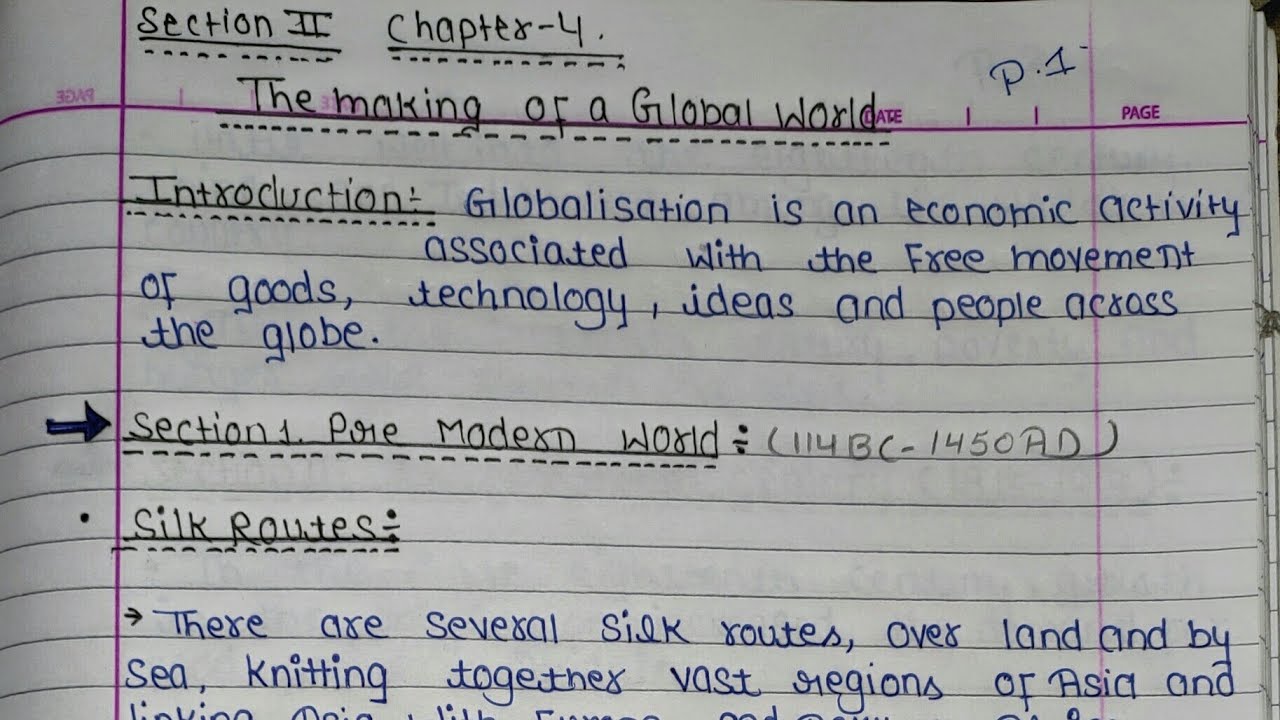 Section II Chapter-4.
P.1
The making of a Global World
DATE
PAGE
Introduction:- Globalisation is an economic activity
associated with the Free movement
of goods, technology, ideas and people across
the globe.
→ Section 1. Pre Modern World :- (114BC-1450AD)
• Silk Routes:-
→ There are several silk routes, over land and by
sea, knitting together vast regions of Asia and
linking Asia with Europe and